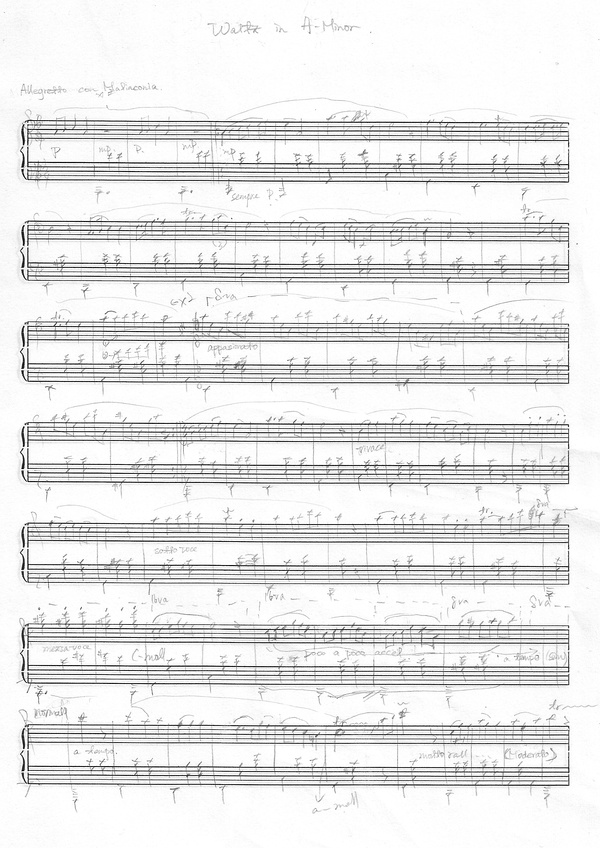 Waltz in A-Minor.
Allegretto con Malinconia.
P mp P. mp mp
sempre P.
tr
8va
tr
appassionato
vivace
8va
sotto voce
8va 8va 8va 8va
mezza-voce C-moll poco a poco accel a tempo
normal
tr
a tempo. molto rall (Moderato)
a-moll